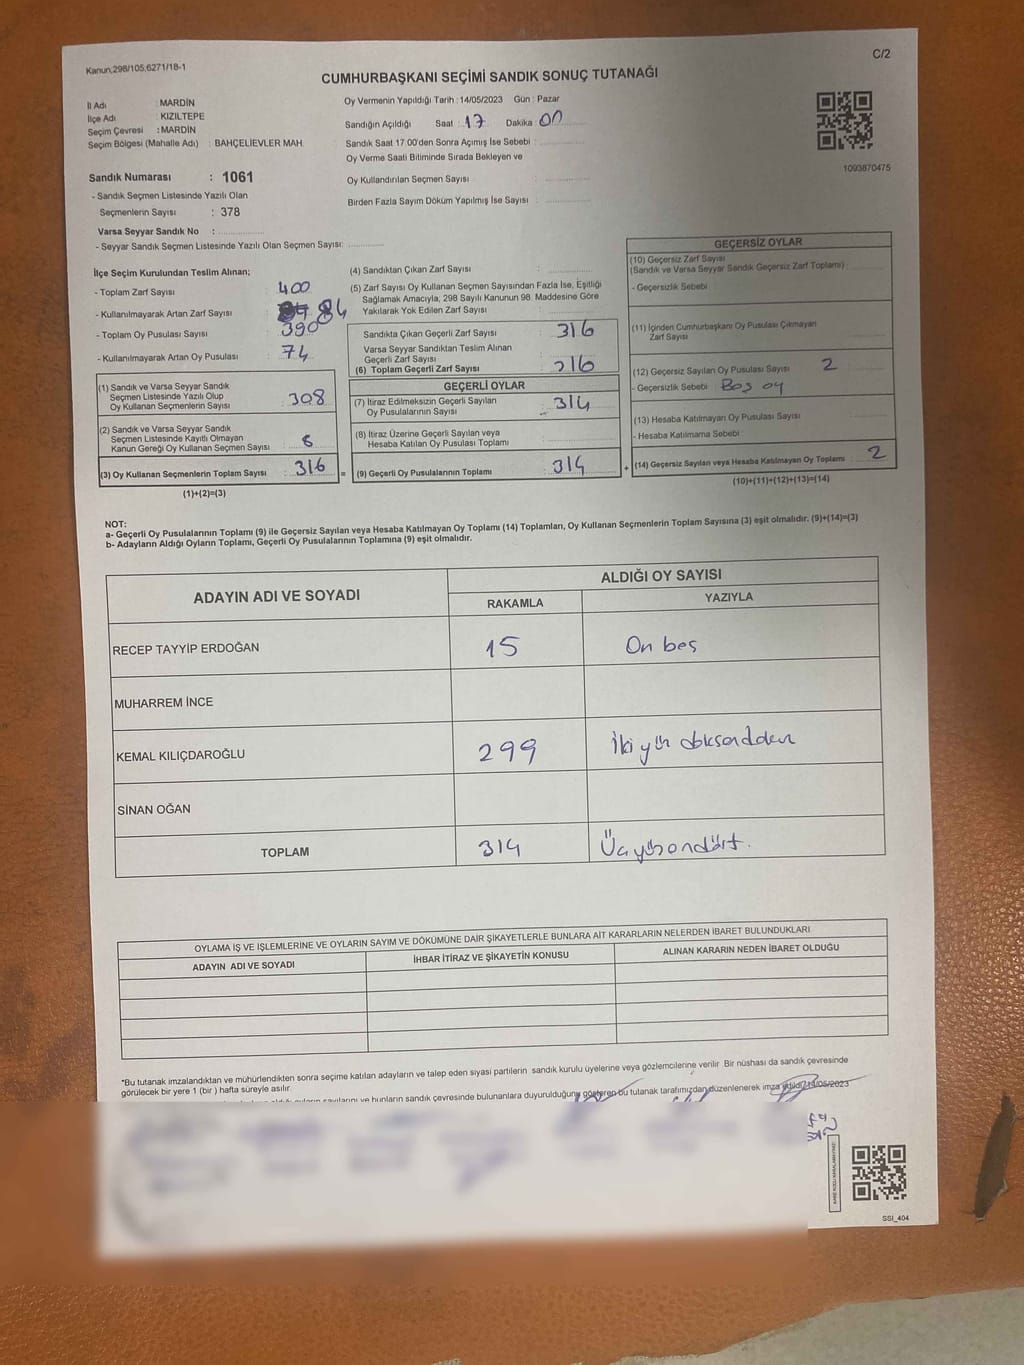 Kanun,298/105,6271/18-1
C/2
CUMHURBAŞKANI SEÇİMİ SANDIK SONUÇ TUTANAĞI
İl Adı : MARDİN
İlçe Adı : KIZILTEPE
Seçim Çevresi : MARDİN
Seçim Bölgesi (Mahalle Adı) : BAHÇELİEVLER MAH.
Sandık Numarası : 1061
- Sandık Seçmen Listesinde Yazılı Olan
Seçmenlerin Sayısı : 378
Varsa Seyyar Sandık No :
- Seyyar Sandık Seçmen Listesinde Yazılı Olan Seçmen Sayısı:
Oy Vermenin Yapıldığı Tarih : 14/05/2023 Gün : Pazar
Sandığın Açıldığı Saat : 17 Dakika : 00
Sandık Saat 17.00'den Sonra Açımış İse Sebebi :
Oy Verme Saati Bitiminde Sırada Bekleyen ve
Oy Kullandırılan Seçmen Sayısı :
Birden Fazla Sayım Döküm Yapılmış İse Sayısı :
1093870475
İlçe Seçim Kurulundan Teslim Alınan;
- Toplam Zarf Sayısı : 400
- Kullanılmayarak Artan Zarf Sayısı : 84
- Toplam Oy Pusulası Sayısı : 390
- Kullanılmayarak Artan Oy Pusulası : 74
(1) Sandık ve Varsa Seyyar Sandık
Seçmen Listesinde Yazılı Olup
Oy Kullanan Seçmenlerin Sayısı : 308
(2) Sandık ve Varsa Seyyar Sandık
Seçmen Listesinde Kayıtlı Olmayan
Kanun Gereği Oy Kullanan Seçmen Sayısı : 8
(3) Oy Kullanan Seçmenlerin Toplam Sayısı : 316 =
(1)+(2)=(3)
(4) Sandıktan Çıkan Zarf Sayısı :
(5) Zarf Sayısı Oy Kullanan Seçmen Sayısından Fazla İse, Eşitliği
Sağlamak Amacıyla, 298 Sayılı Kanunun 98. Maddesine Göre
Yakılarak Yok Edilen Zarf Sayısı :
Sandıkta Çıkan Geçerli Zarf Sayısı : 316
Varsa Seyyar Sandıktan Teslim Alınan
Geçerli Zarf Sayısı :
(6) Toplam Geçerli Zarf Sayısı : 316
GEÇERLİ OYLAR
(7) İtiraz Edilmeksizin Geçerli Sayılan
Oy Pusulalarının Sayısı : 314
(8) İtiraz Üzerine Geçerli Sayılan veya
Hesaba Katılan Oy Pusulası Toplamı :
(9) Geçerli Oy Pusulalarının Toplamı : 314 +
GEÇERSİZ OYLAR
(10) Geçersiz Zarf Sayısı
(Sandık ve Varsa Seyyar Sandık Geçersiz Zarf Toplamı) :
- Geçersizlik Sebebi :
(11) İçinden Cumhurbaşkanı Oy Pusulası Çıkmayan
Zarf Sayısı :
(12) Geçersiz Sayılan Oy Pusulası Sayısı : 2
- Geçersizlik Sebebi : Boş oy
(13) Hesaba Katılmayan Oy Pusulası Sayısı :
- Hesaba Katılmama Sebebi :
(14) Geçersiz Sayılan veya Hesaba Katılmayan Oy Toplamı : 2
(10)+(11)+(12)+(13)=(14)
NOT:
a- Geçerli Oy Pusulalarının Toplamı (9) ile Geçersiz Sayılan veya Hesaba Katılmayan Oy Toplamı (14) Toplamları, Oy Kullanan Seçmenlerin Toplam Sayısına (3) eşit olmalıdır. (9)+(14)=(3)
b- Adayların Aldığı Oyların Toplamı, Geçerli Oy Pusulalarının Toplamına (9) eşit olmalıdır.
ADAYIN ADI VE SOYADI
ALDIĞI OY SAYISI
RAKAMLA YAZIYLA
RECEP TAYYİP ERDOĞAN 15 On beş
MUHARREM İNCE
KEMAL KILIÇDAROĞLU 299 İki yüz doksandokuz
SİNAN OĞAN
TOPLAM 314 Üçyüzondört.
OYLAMA İŞ VE İŞLEMLERİNE VE OYLARIN SAYIM VE DÖKÜMÜNE DAİR ŞİKAYETLERLE BUNLARA AİT KARARLARIN NELERDEN İBARET BULUNDUKLARI
ADAYIN ADI VE SOYADI İHBAR İTİRAZ VE ŞİKAYETİN KONUSU ALINAN KARARIN NEDEN İBARET OLDUĞU
*Bu tutanak imzalandıktan ve mühürlendikten sonra seçime katılan adayların ve talep eden siyasi partilerin sandık kurulu üyelerine veya gözlemcilerine verilir. Bir nüshası da sandık çevresinde
görülecek bir yere 1 (bir) hafta süreyle asılır.
sayılarını ve bunların sandık çevresinde bulunanlara duyurulduğunu gösteren bu tutanak tarafımızdan düzenlenerek imza edildi. 14/05/2023
SSI_404